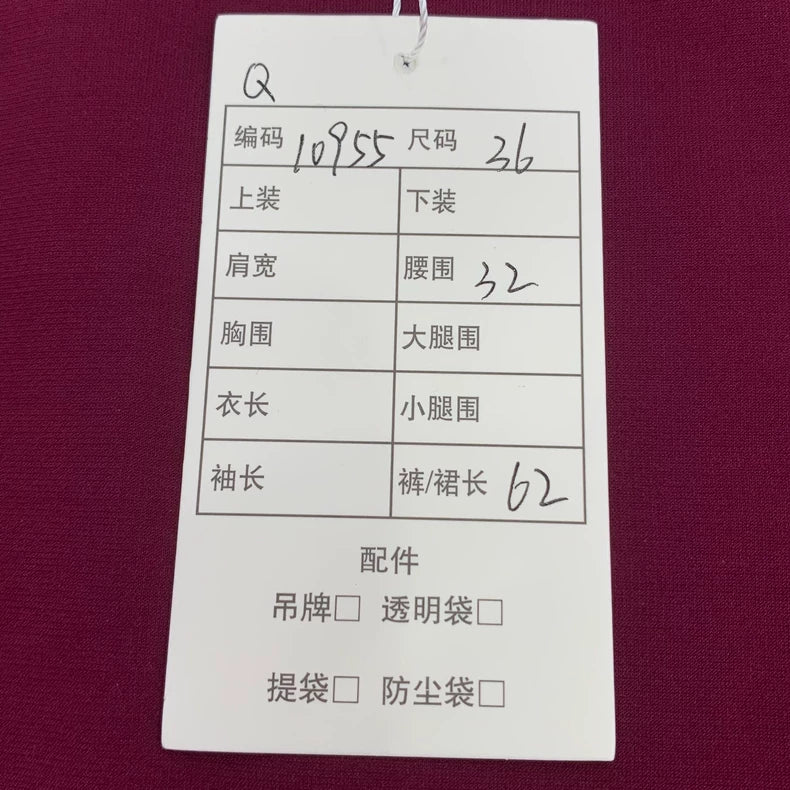 Q
编码 10955 尺码 36
上装 下装
肩宽 腰围 32
胸围 大腿围
衣长 小腿围
袖长 裤/裙长 62
配件
吊牌□ 透明袋□
提袋□ 防尘袋□